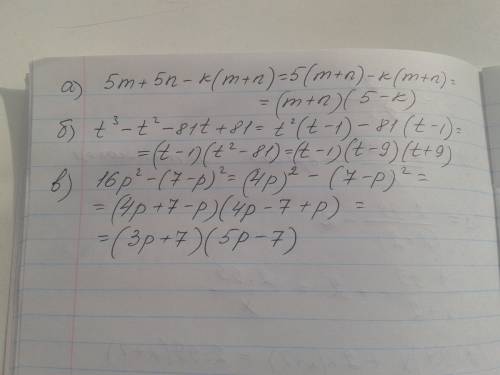 а) 5m + 5n - к(m+n) = 5(m+n) - к(m+n) =
= (m+n)(5-к)
б) t³ - t² - 81t + 81 = t²(t-1) - 81(t-1) =
= (t-1)(t²-81) = (t-1)(t-9)(t+9)
в) 16p² - (7-p)² = (4p)² - (7-p)² =
= (4p+7-p)(4p-7+p) =
= (3p+7)(5p-7)